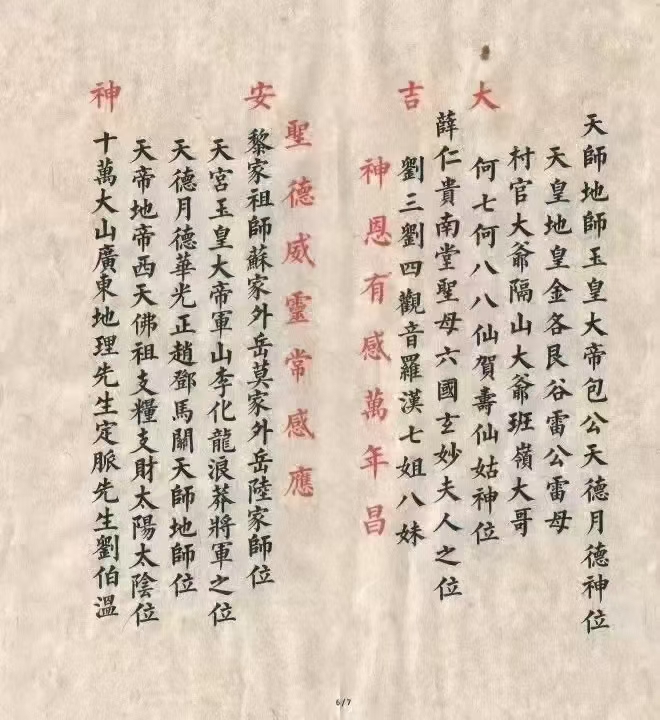 大吉安神
天師地師玉皇大帝包公天德月德神位
天皇地皇金各艮谷雷公雷母
村官大爺隔山大爺班嶺大哥
何七何八八仙賀壽仙姑神位
薛仁貴南堂聖母六國玄妙夫人之位
劉三劉四觀音羅漢七姐八妹
神恩有感萬年昌
聖德威靈常感應
黎家祖師蘇家外岳莫家外岳陸家師位
天宮玉皇大帝軍山李化龍浪莽將軍之位
天德月德華光正趙鄧馬關天師地師位
天帝地帝西天佛祖支糧支財太陽太陰位
十萬大山廣東地理先生定脈先生劉伯溫
6/7